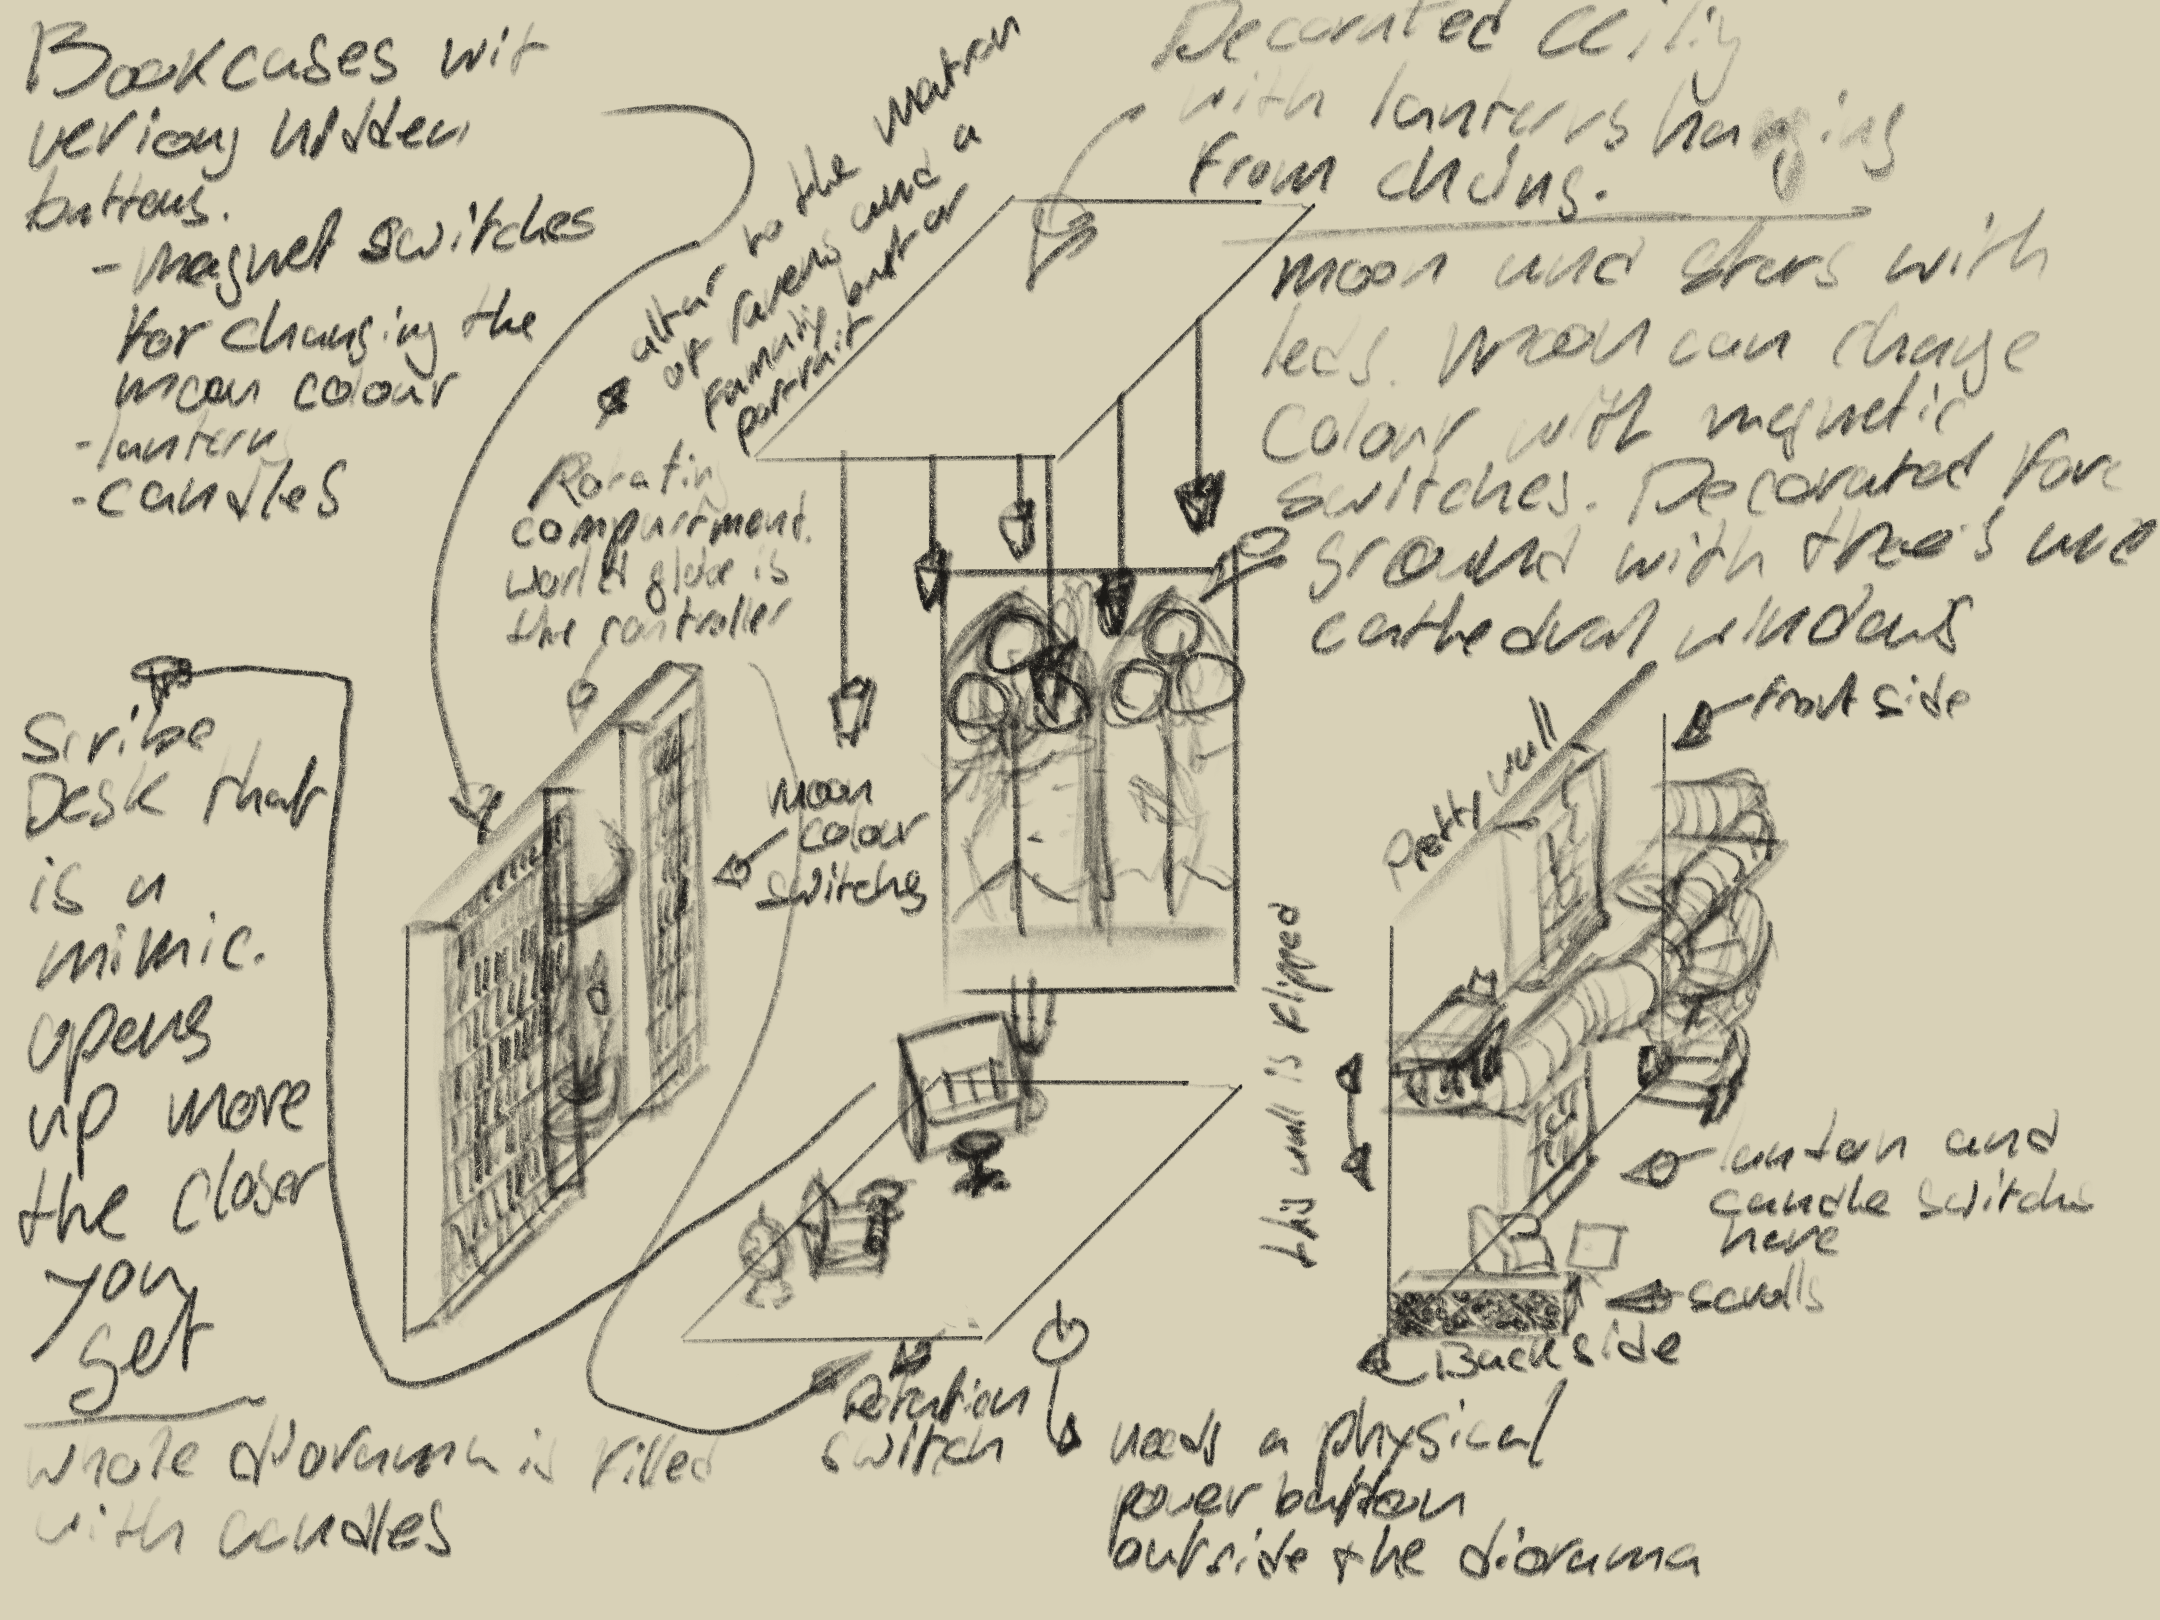 Bookcases wit
veriouy hidden
buttons.
- magnet switches
for changing the
moon colour
- lanterns
- candles
altar to the matron
of ravens and a
family portrait
portrait
Decorated ceiliy
with lanterns hanging
from chains.
moon and stars with
leds. Moon can change
colour with magnetic
switches. Decorated fore
ground with three's and
cathedral windows
Rotating
compartment.
world globe is
the controller
Scribe
Desk that
is a
mimic.
opens
up more
the closer
you
get
whole diorama is filled
with candles
moon
colour
switches
Rotation
switch
needs a physical
power button
outside the diorama
this wall is flipped
Pretty wall
front side
lantern and
candle switches
here
scrolls
Back side